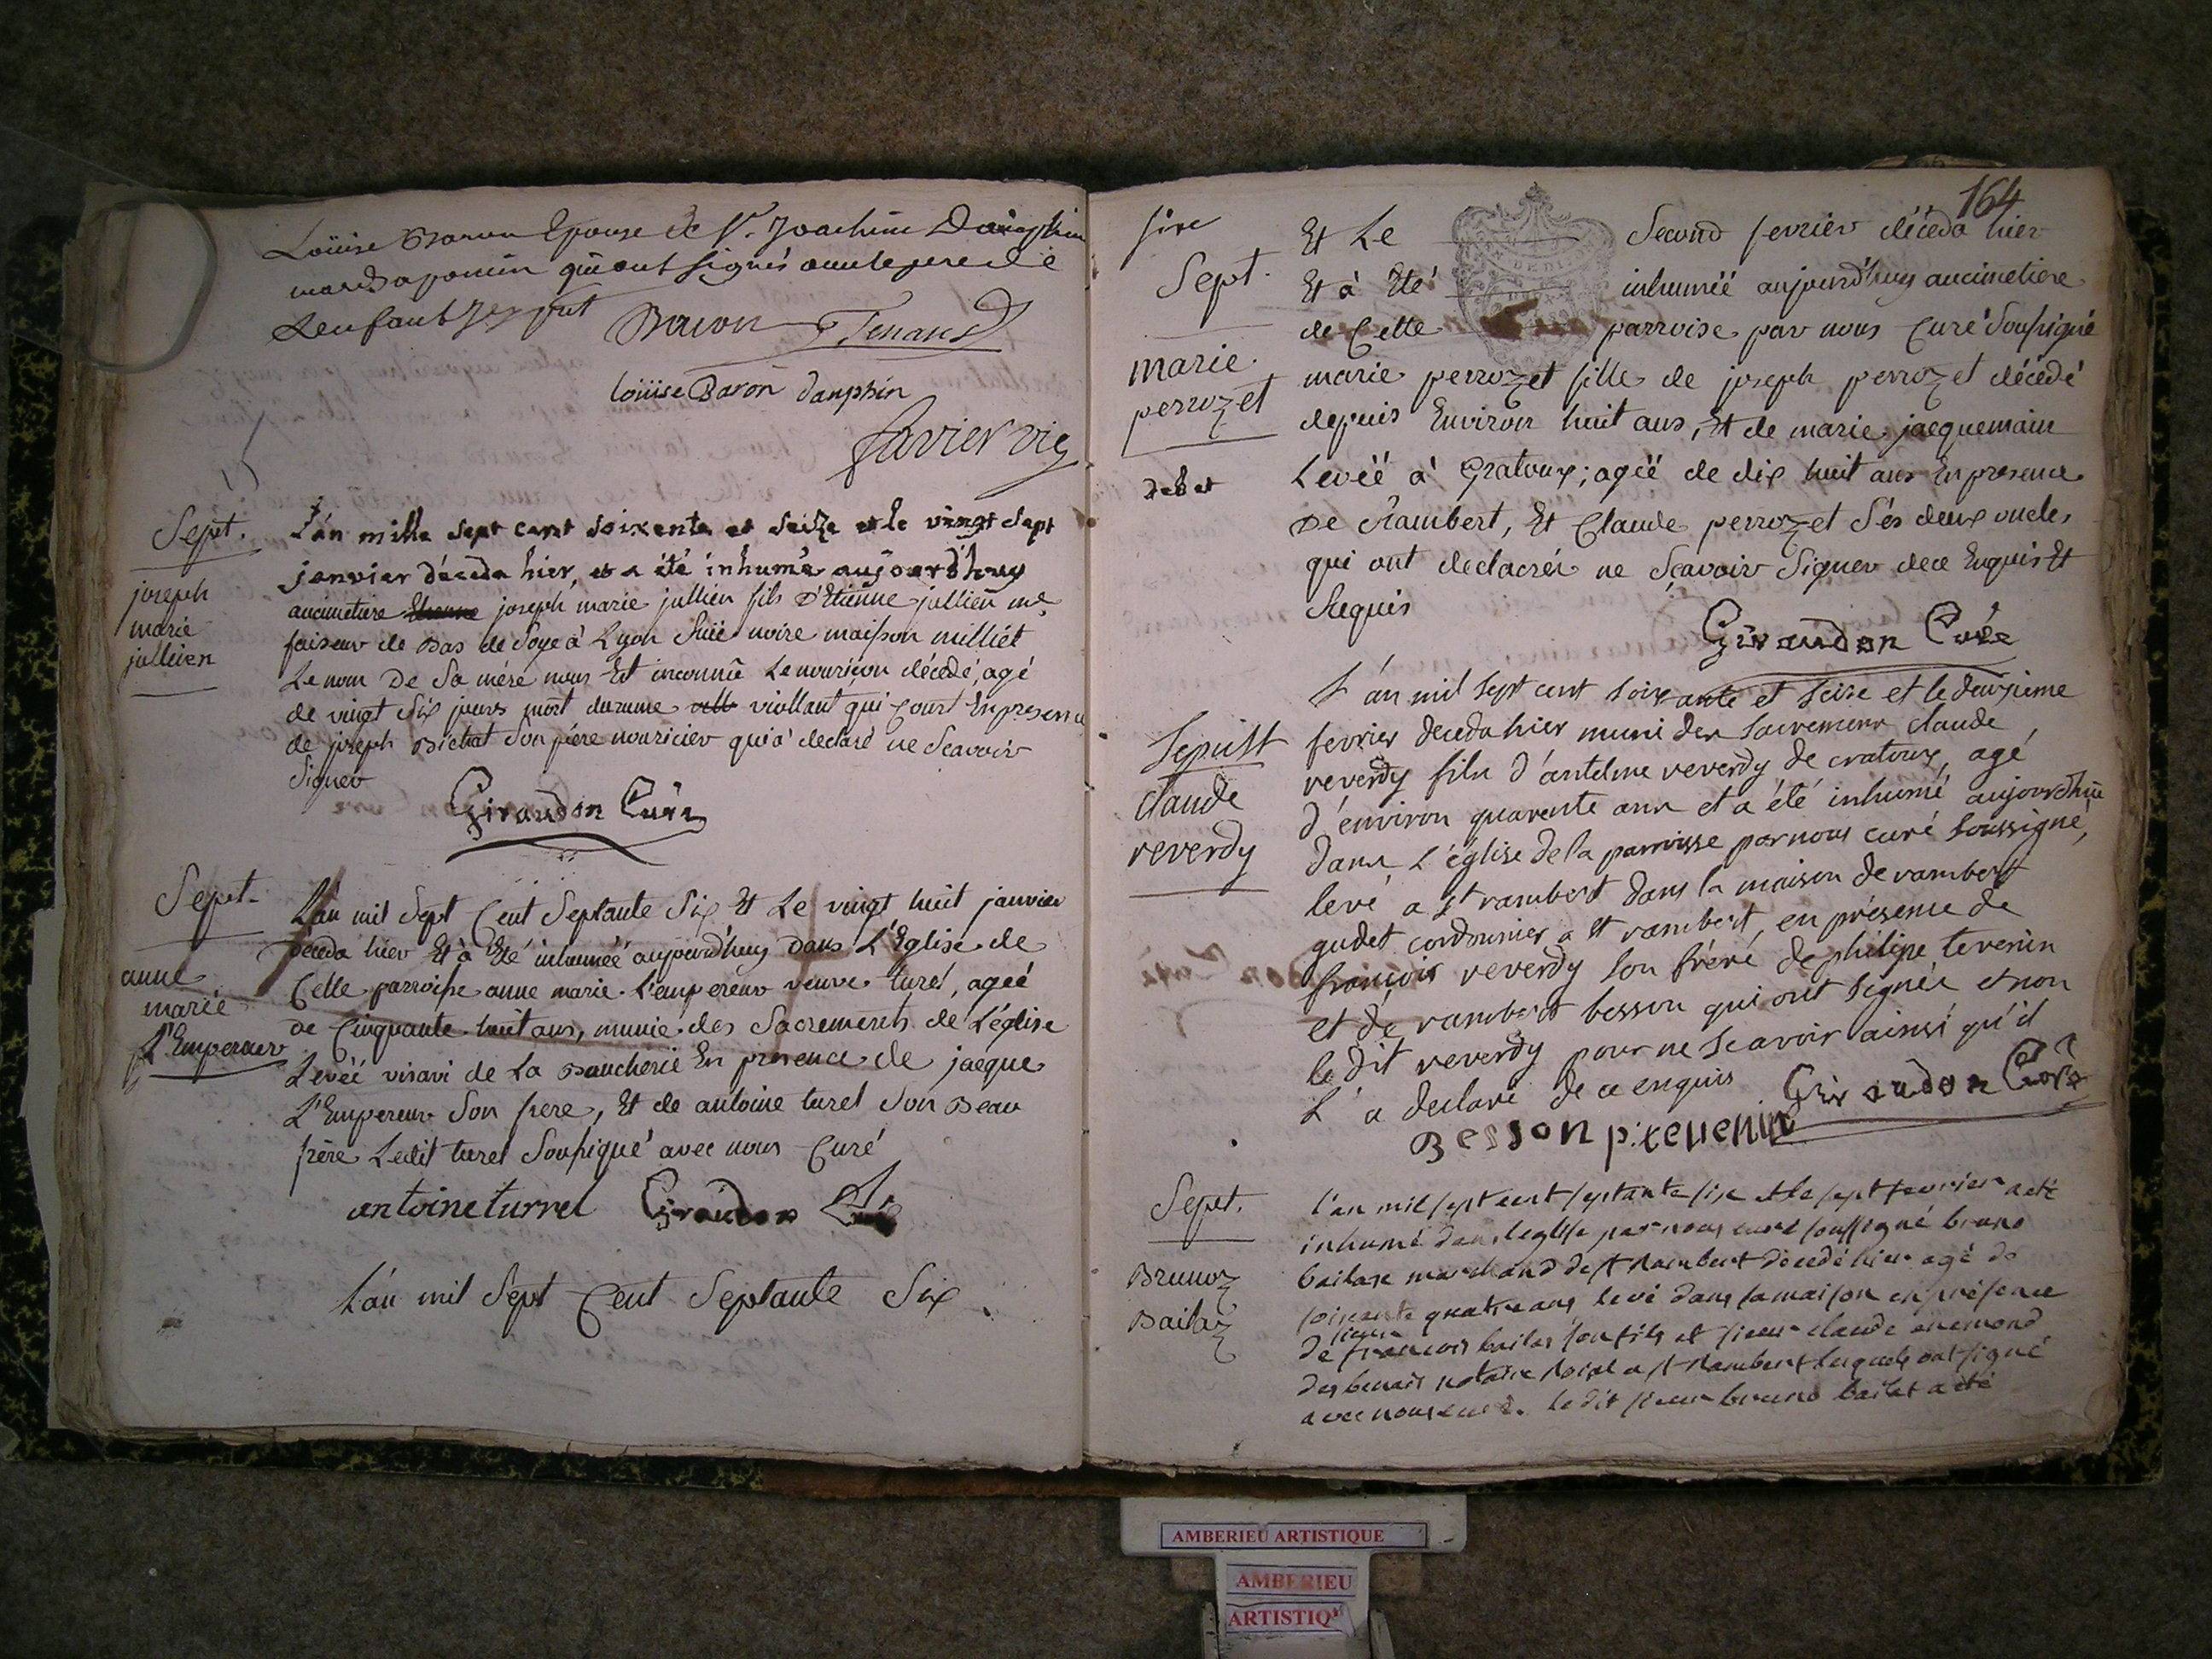 Loüise Baron Epouse de Sr. Joachim Dauphin
mard a poncin qui ont signés avec le pere de
L'enfant
Baron Tenand
loüise Baron dauphin
Savier vic
Sept.
joseph
marie
jullien
L'an mille sept cent soixente et seize et le vingt sept
janvier déceda hier, et a été inhumé aujourd'huy
aucimetiere Etienne joseph marie jullien fils d'Etienne jullien me
faiseur de Bas de Soye à Lyon Ruë noire maison milliét
Le nom De Sa mére nous Est inconnüe Le nouriçon décédé, agé
de vingt Six jours mort durume viollant qui Court En presence
de joseph Bichat Son pére nouricier qui à declaré ne Scavoir
Signer
Giraudon Curé
Sept.
anne
marie
L'Empereur
L'an mil Sept Cent Septante Six Et Le vingt huit janvier
déceda hier Et à Eté inhumée aujourd'huy dans L'Eglise de
Cette parroisse anne marie L'empereur veuve turel, ageé
de Cinquante huit ans, munie des Sacrements de L'église
Levéé visavi de La Boucherie En presence de jacque
L'Empereur Son frere, Et de antoine turel Son Beau
frére Ledit turel Soussigné avec nous Curé
antoine turrel Giraudon Curé
L'an mil Sept Cent Septante Six
164
Sept.
marie
perrozet
debet
Et Le Second fevrier décéda hier
Et à Eté inhuméë aujourd'huy aucimetiere
de Cette parroise par nous Curé Soussigné
marie perrozet fille de joseph perrozet décédé
depuis Environ huit ans, Et de marie jacquemain
Levéë à Gratoux; agéë de dix huit ans En presence
De Rambert, Et Claude perrozet Sés deux oncles
qui ont declarés ne Sçavoir Signer dece Enquis Et
Requis
Giraudon Curé
Sepult
claude
reverdy
L'an mil sept cent soixante et seize et le deuxieme
fevrier deceda hier muni des sacremens claude
reverdy fils d'antelme reverdy de cratoux, agé
d'environ quarente ans et a été inhumé aujourdhüi
dans L'église de la parroisse par nous curé soussigné,
levé a st rambert dans la maison de rambert
gudet cordonnier a st rambert, en présence de
françois reverdy son frére de philipe tevenin
et de rambert besson qui ont signés et non
le dit reverdy pour ne scavoir ainsi qu'il
L'a declaré de ce enquis Giraudon Curé
Besson p: tevenin
Sept.
Brunoz
Bailaz
l'an mil sept cent septante six et le sept fevrier a eté
inhumé dans leglise par nous curé soussigné bruno
bailase marchand de st Rambert décedé hier agé de
soixante quatre ans levé dans sa maison en présence
de sieur francois bailas son fils et sieur claude enemond
des benais notaire roial a st Rambert lesquels ont signé
avec nous curé. le dit sieur bruno bailat a été
AMBERIEU ARTISTIQUE
AMBERIEU
ARTISTIQ